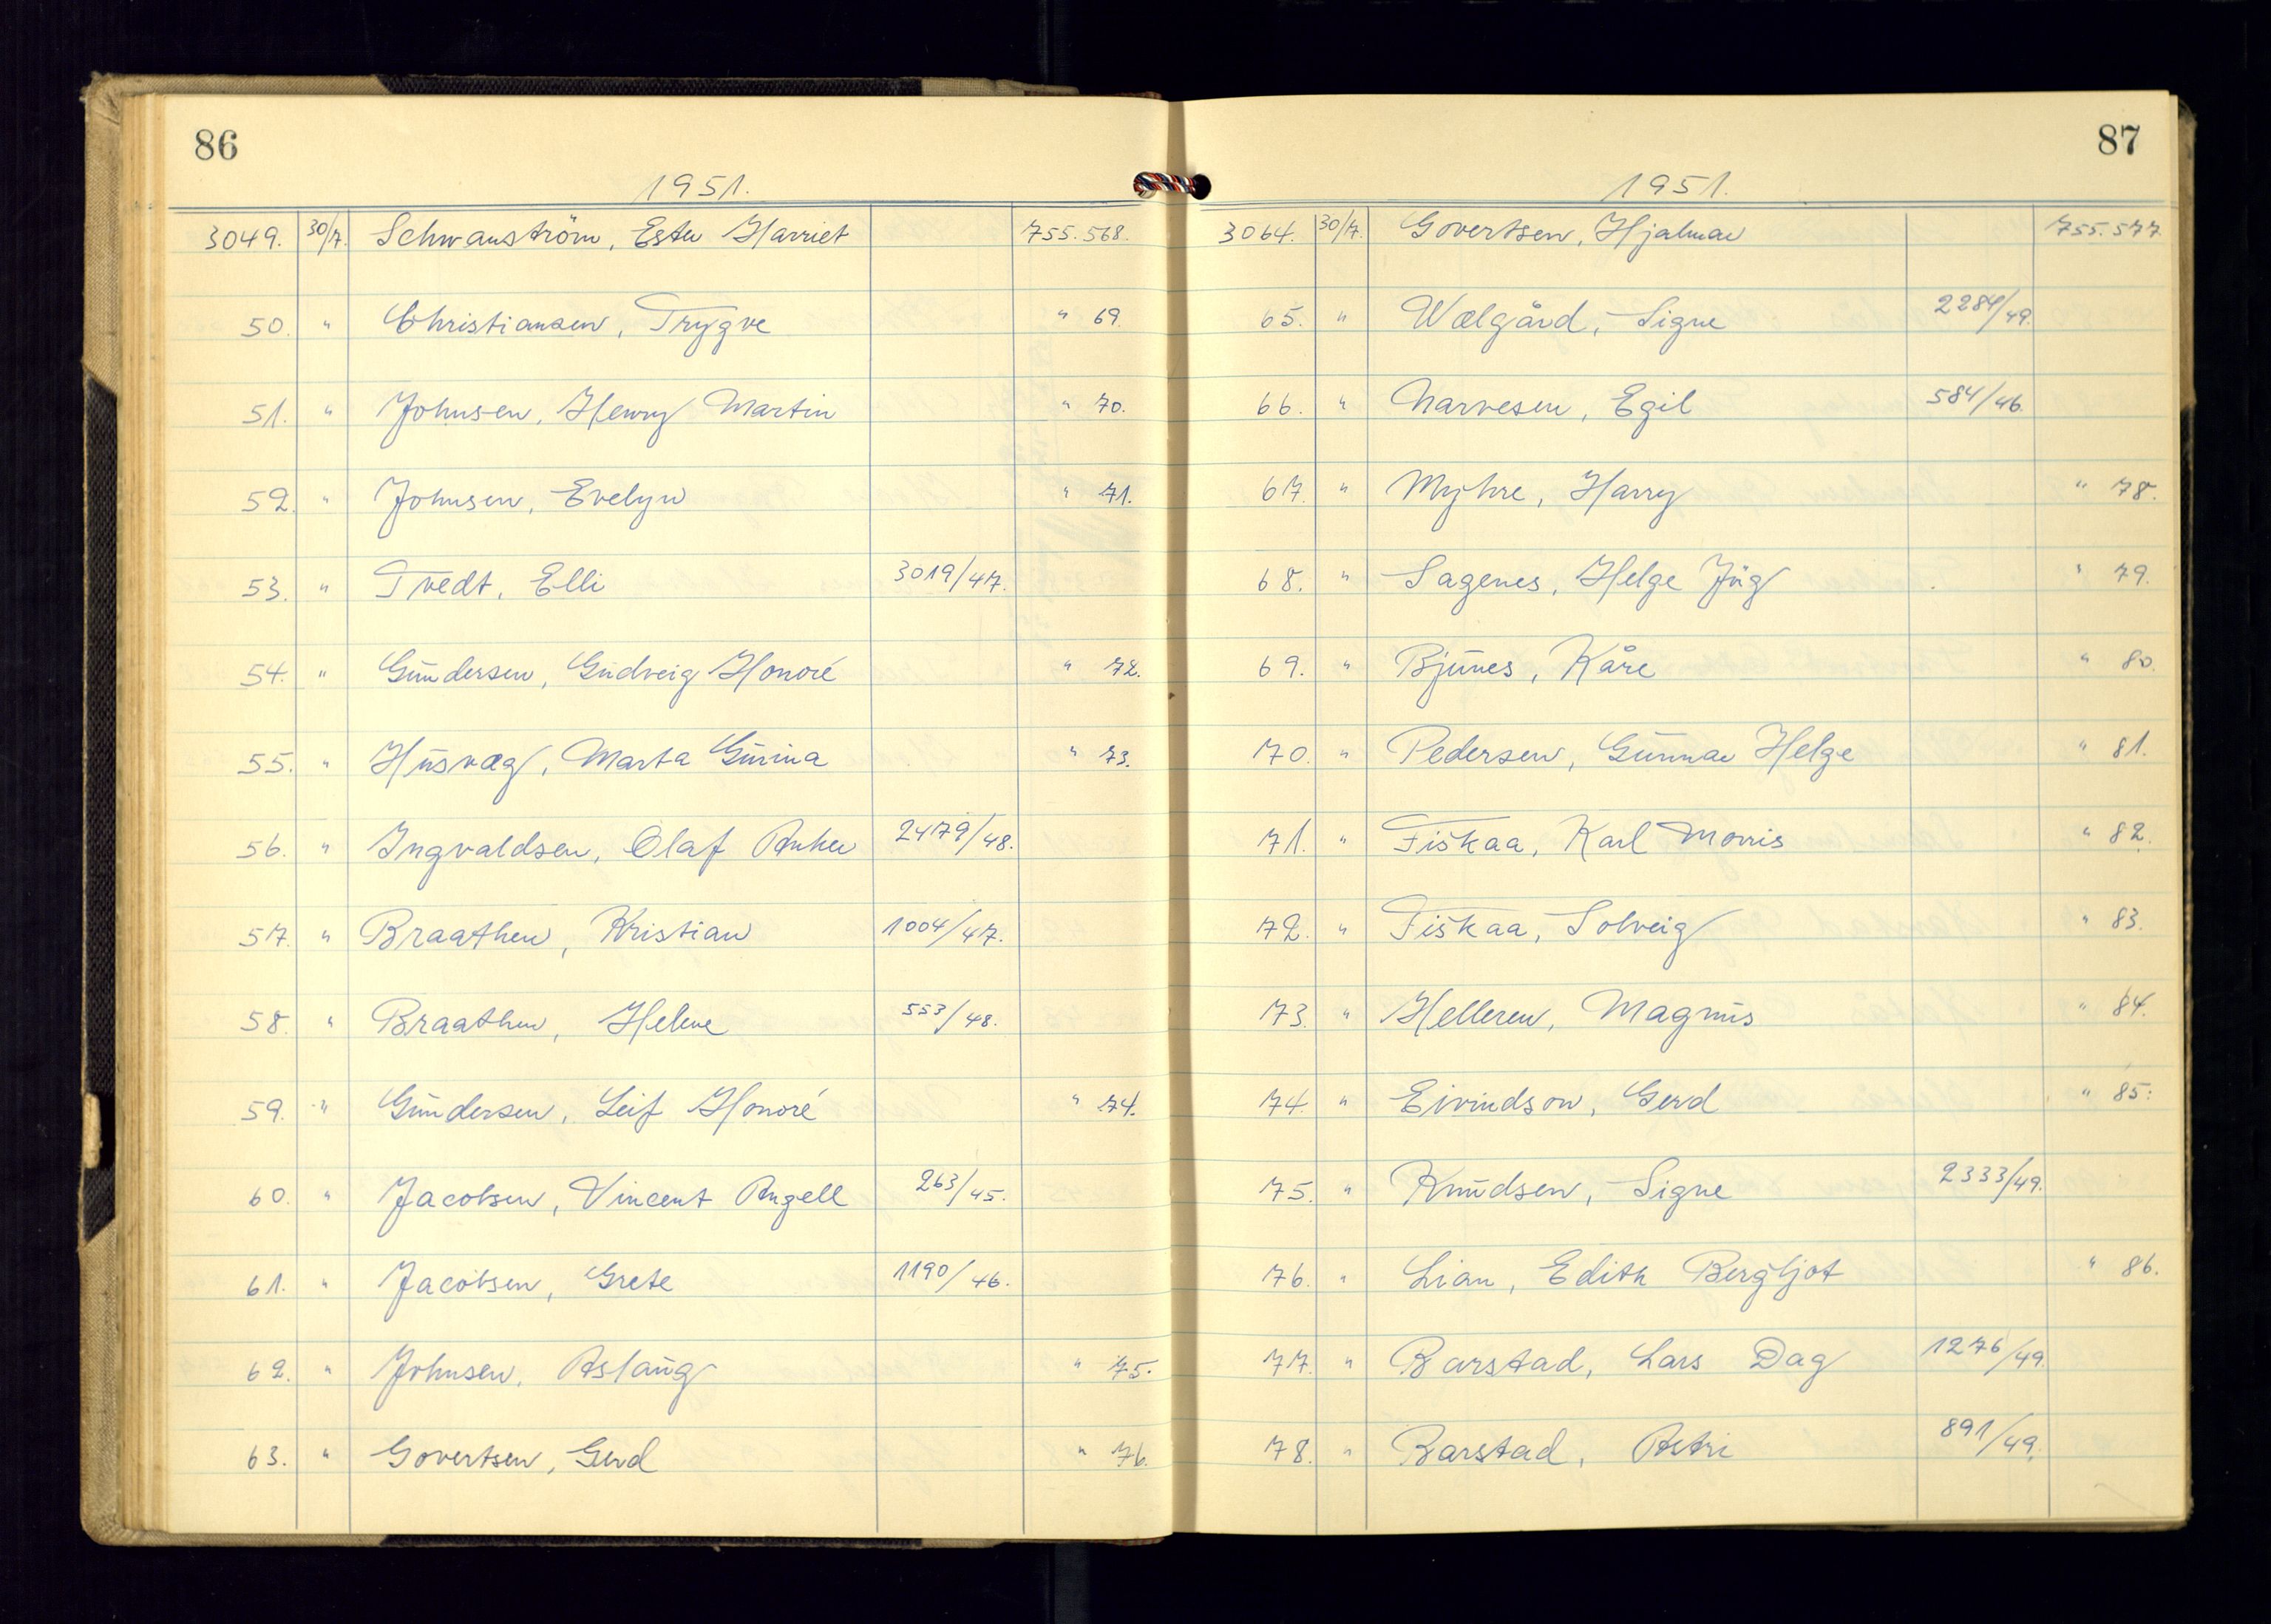 86
1951.
3049. 30/7. Schwanström, Ester Harriet 755.568.
50. " Christiansen, Trygve " 69.
51. " Johnsen, Henry Martin " 70.
52. " Johnsen, Evelyn " 71.
53. " Tvedt, Elli 3019/47.
54. " Gundersen, Gudveig Honoré " 72.
55. " Husvæg, Marta Gurina " 73.
56. " Ingvaldsen, Olaf Anker 2479/48.
57. " Braathen, Kristian 1004/47.
58. " Braathen, Helene 553/48.
59. " Gundersen, Leif Honoré " 74.
60. " Jacobsen, Vincent Angell 263/45.
61. " Jacobsen, Grete 1190/46.
62. " Johnsen, Aslaug " 75.
63. " Govertsen, Gerd " 76.
87
1951.
3064. 30/7. Govertsen, Hjalmar 755.577.
65. " Wælgård, Signe 2284/49.
66. " Narvesen, Egil 584/46.
67. " Myhre, Harry " 78.
68. " Sagenes, Helge " 79.
69. " Bjunes, Kåre " 80.
70. " Pedersen, Gunnar Helge " 81.
71. " Fiskaa, Karl Morris " 82.
72. " Fiskaa, Solveig " 83.
73. " Helleren, Magnus " 84.
74. " Eivindson, Gerd " 85.
75. " Knudsen, Signe 2333/49.
76. " Lian, Edith Bergljot " 86.
77. " Barstad, Lars Dag 1276/49.
78. " Barstad, Astri 891/49.